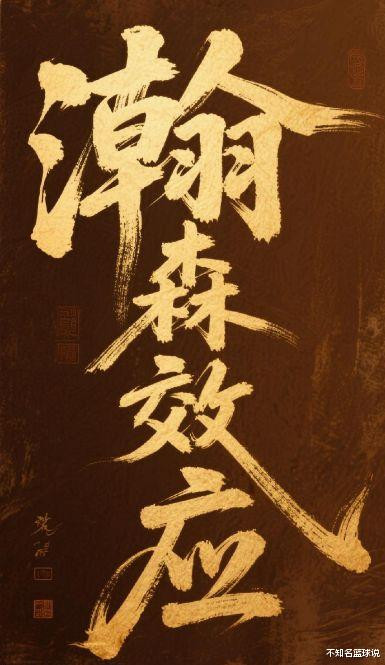 瀚
森
效
应
不知名篮球说